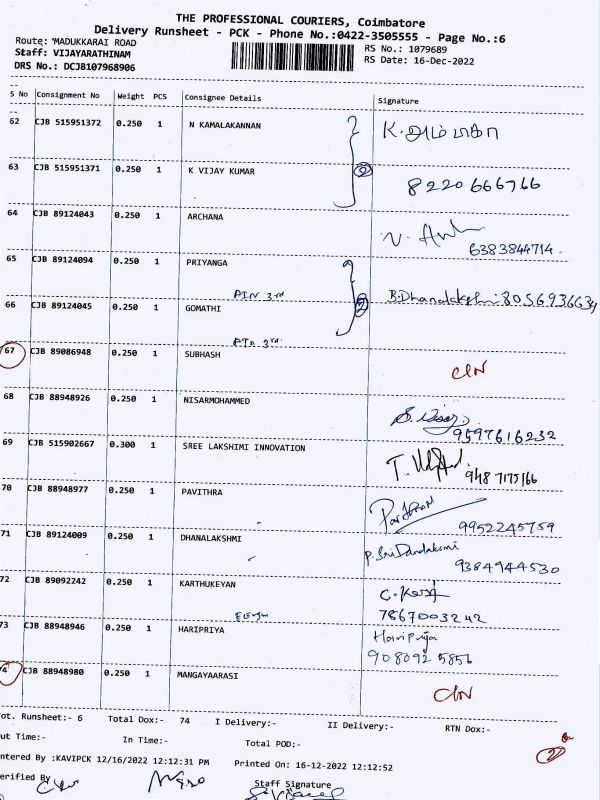 THE PROFESSIONAL COURIERS, Coimbatore
Delivery Runsheet - PCK - Phone No.:0422-3505555 - Page No.:6
Route: 'MADUKKARAI ROAD
RS No.: 1079689
Staff: VIJAYARATHINAM
RS Date: 16-Dec-2022
DRS No.: DCJB107968906
S No Consignment No Weight PCS Consignee Details Signature
62 CJB 515951372 0.250 1 N KAMALAKANNAN
63 CJB 515951371 0.250 1 K VIJAY KUMAR 2 8220666766
64 CJB 89124043 0.250 1 ARCHANA 6383844714.
65 CJB 89124094 0.250 1 PRIYANGA
66 CJB 89124045 0.250 1 GOMATHI 2 B.Dhanalakshmi 8056936634
67 CJB 89086948 0.250 1 SUBHASH
68 CJB 88948926 0.250 1 NISARMOHAMMED 9597616232
69 CJB 515902667 0.300 1 SREE LAKSHMI INNOVATION 9487175166
70 CJB 88948977 0.250 1 PAVITHRA 9952245759
71 CJB 89124009 0.250 1 DHANALAKSHMI 9384944530
72 CJB 89092242 0.250 1 KARTHUKEYAN 7867003242
73 CJB 88948946 0.250 1 HARIPRIYA Haripriya
908092 5856
74 CJB 88948980 0.250 1 MANGAYAARASI
Tot. Runsheet:- 6 Total Dox:- 74 I Delivery:- II Delivery:- RTN Dox:-
Out Time:- In Time:- Total POD:- 2
Entered By :KAVIPCK 12/16/2022 12:12:31 PM Printed On: 16-12-2022 12:12:52
Verified By Staff Signature